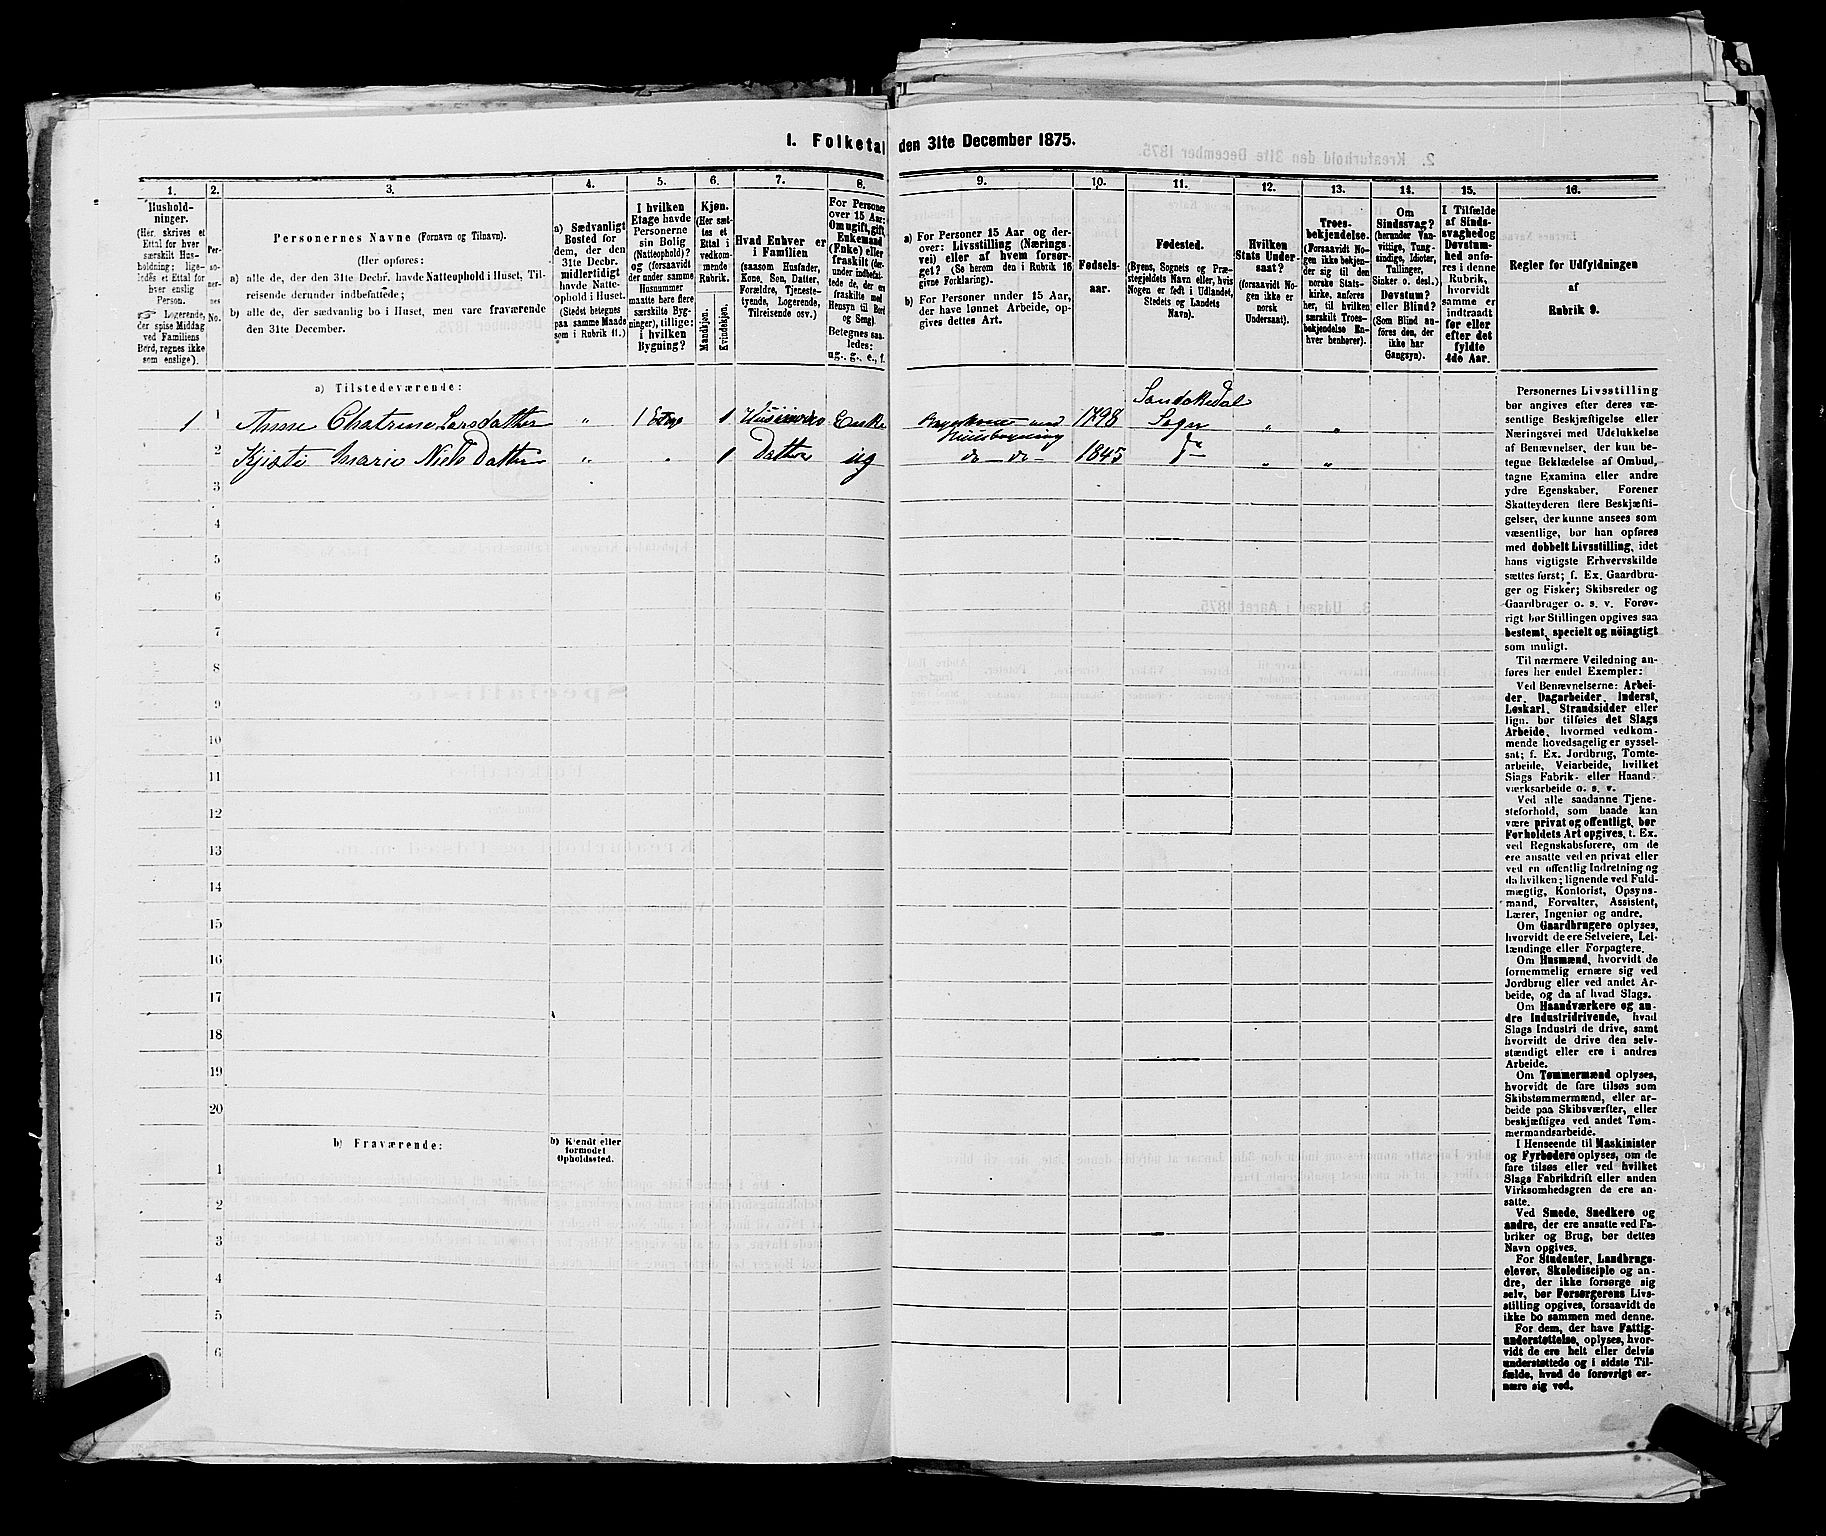 1. Folketal den 31te December 1875.
1. 2. 3. 4. 5. 6. 7. 8. 9. 10. 11. 12. 13. 14. 15. 16.
Hushold-
ninger.
(Her skrives et
Ettal for hver
særskilt Hus-
holdning; lige-
ledes et Ettal for
hver enslig
Person.
Logerende,
der spise Middag
ved Familiens
Bord, regnes ikke
som enslige).
Per-
so-
ner-
nes
No.
Personernes Navne (Fornavn og Tilnavn).
(Her opføres:
a) alle de, der den 31te Decbr. havde Natteophold i Huset, Til-
reisende derunder indbefattede;
b) alle de, der sædvanlig bo i Huset, men vare fraværende
den 31te December.
a) Sædvanligt
Bosted for
dem, der den
31te Decbr.
midlertidigt
havde Natte-
ophold i Huset.
(Stedet betegnes
paa samme Maade
som i Rubrik 11.)
I hvilken
Etage havde
Personerne
sin Bolig
(Natteophold)?
og (forsaavidt
der under samme
Husnummer
maatte høre flere
særskilte Byg-
ninger), tillige:
i hvilken
Bygning?
Kjøn.
(Her sæt-
tes et
Ettal i
vedkom-
mende
Rubrik.
Mandkjøn.
Kvindekjøn.
Hvad Enhver er
i Familien
(saasom Husfader,
Kone, Søn, Datter,
Forældre, Tjeneste-
tyende, Logerende,
Tilreisende osv.)
For Personer
over 15 Aar:
Om ugift, gift,
Enkemand
(Enke) eller
fraskilt (der-
under indbefat-
tede de, der ere
fraskilte med
Hensyn til Bord
og Seng).
Betegnes saa-
ledes:
ug., g., e., f.
a) For Personer 15 Aar og der-
over: Livsstilling (Nærings-
vei) eller af hvem forsør-
get? (Se herom den i Rubrik 16
givne Forklaring).
b) For Personer under 15 Aar,
der have lønnet Arbeide, op-
gives dettes Art.
Fødsels-
aar.
Fødested.
(Byens, Sognets og Præ-
stegjeldets Navn eller, hvis
Nogen er født i Udlandet,
Stedets og Landets
Navn).
Hvilken
Stats Under-
saat?
(forsaavidt No-
gen ikke er
norsk
Undersaat).
Troes-
bekjendelse.
(Forsaavidt No-
gen ikke bekjen-
der sig til den
norske Stats-
kirke, anføres
her, til hvilken
særskilt Troes-
bekjendelse En-
hver henhører).
Om
Sindssvag?
(herunder Van-
vittige, Tung-
sindige, Idioter,
Tullinger,
Sinker o. desl.)
Døvstum?
eller Blind?
(Som Blind an-
føres den, der
ikke har
Gangsyn).
I Tilfælde
af Sinds-
svaghed og
Døvstum-
hed anfø-
res i denne
Rubrik,
hvorvidt
samme er
indtraadt
før eller
efter det
fyldte
4de Aar.
Regler for Udfyldningen
af
Rubrik 9.
a) Tilstedeværende:
1 1 Anne Chatrine Larsdatter " 1 Etage 1 Enke 1798 Sandøkedal Sogn " "
2 Kjisti Marie Niels Datter " " 1 Datter ug do do 1845 " "
3
4
5
6
7
8
9
10
11
12
13
14
15
16
17
18
19
20
b) Fraværende:
b) Kjendt eller
formodet
Opholdssted.
1
2
3
4
5
6
Personernes Livsstilling
bør angives efter deres væ-
sentlige Beskjæftigelse eller
Næringsvei med Udelukkelse
af Benævnelser, der kun be-
tegne Beklædelse af Ombud,
tagne Examina eller andre
ydre Egenskaber. Forener
Skatteyderen flere Beskjæfti-
gelser, der kunne ansees som
væsentlige, bør han opføres
med dobbelt Livsstilling, idet
hans vigtigste Erhvervskilde
sættes først; f. Ex. Gaardbru-
ger og Fisker; Skibsreder og
Gaardbruger o. s. v. Forøv-
rigt bør Stillingen opgives saa
bestemt, specielt og nöiagtigt
som muligt.
Til nærmere Veiledning an-
føres her endel Exempler:
Ved Benævnelserne: Arbei-
der, Dagarbeider, Inderst,
Løskarl, Strandsidder eller
lign. bør tilføies det Slags
Arbeide, hvormed vedkom-
mende hovedsagelig er syssel-
sat; f. Ex. Jordbrug, Tomte-
arbeide, Veiarbeide, hvilket
Slags Fabrik- eller Haand-
værksarbeide o. s. v.
Ved alle saadanne Tjene-
steforhold, som baade kan
være privat og offentligt, bør
Forholdets Art opgives, t. Ex.
ved Regnskabsførere, om de
ere ansatte ved en privat eller
ved en offentlig Indretning og
da hvilken; lignende ved Fuld-
mægtig, Kontorist, Opsyns-
mand, Forvalter, Assistent,
Lærer, Ingeniør og andre.
Om Gaardbrugere oplyses,
hvorvidt de ere Selveiere, Lei-
lændinge eller Forpagtere.
Om Husmænd, hvorvidt de
fornemmelig ernære sig ved
Jordbrug eller ved andet Ar-
beide, og da af hvad Slags.
Om Haandværkere og an-
dre Industridrivende, hvad
Slags Industri de drive, samt
hvorvidt de drive den selv-
stændigt eller ere i andres
Arbeide.
Om Tømmermænd oplyses,
hvorvidt de fare tilsøs som
Skibstømmermænd, eller ar-
beide paa Skibsværfter, eller
beskjæftiges ved andet Tøm-
mermandsarbeide.
I Henseende til Maskinister
og Fyrbødere oplyses, om de
fare tilsøs eller ved hvilket
Slags Fabrikdrift eller anden
Virksomhedsgren de ere an-
satte.
Ved Smede, Snedkere og
andre, der ere ansatte ved Fa-
briker og Brug, bør dettes
Navn opgives.
For Studenter, Landbrugs-
elever, Skoledisciple og an-
dre, der ikke forsørge sig
selv, bør Forsørgerens Livs-
stilling opgives, forsaavidt de
ikke bo sammen med denne.
For dem, der have Fattig-
understøttelse, oplyses, hvor-
vidt de ere helt eller delvis
understøttede og i sidste Til-
fælde, hvad de forøvrigt er-
nære sig ved.